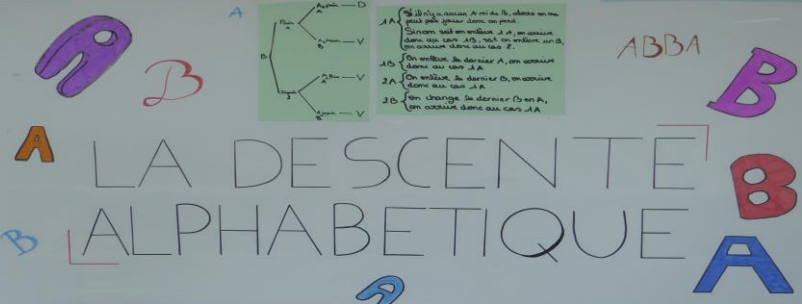 A
A
B
ABBA
B
1A { S'il n'y a aucun A ni de B, alors on ne
peut pas jouer donc on perd.
Sinon soit on enlève 1A, on arrive
donc au cas 1B, soit on enlève un B,
on arrive donc au cas 2.
1B { On enlève le dernier A, on arrive
donc au cas 1A
2A { On enlève le dernier B, on arrive
donc au cas 1A
2B { On change le dernier B en A,
on arrive donc au cas 1A
B
D
V
V
V
A
LA DESCENTE
B
ALPHABETIQUE
B
A
A